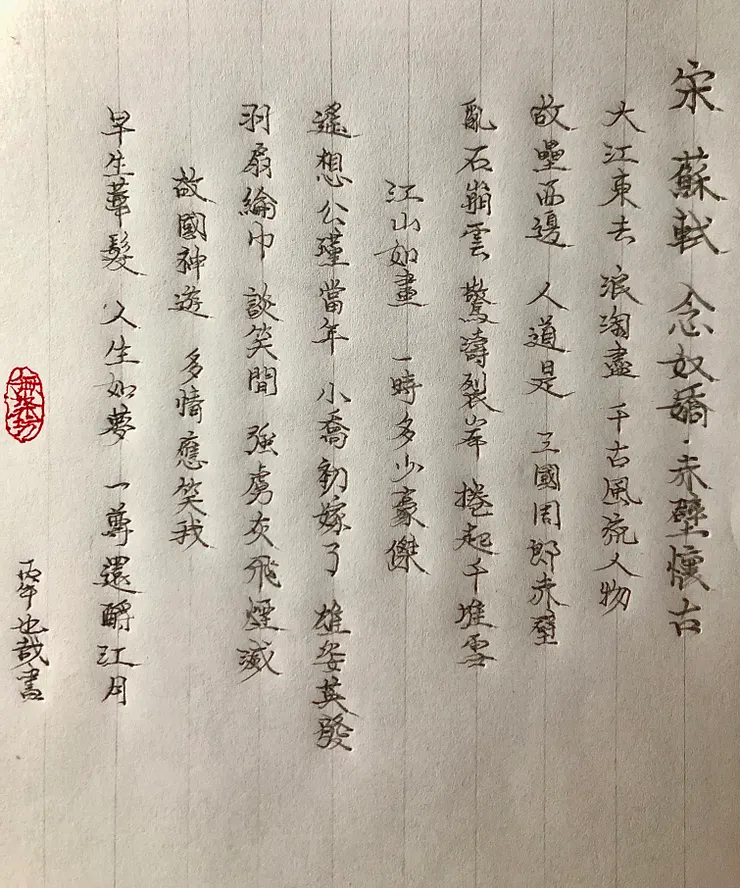 宋 蘇軾 念奴嬌·赤壁懷古
大江東去 浪淘盡 千古風流人物
故壘西邊 人道是 三國周郎赤壁
亂石崩雲 驚濤裂岸 捲起千堆雪
江山如畫 一時多少豪傑
遙想公瑾當年 小喬初嫁了 雄姿英發
羽扇綸巾 談笑間 強虜灰飛煙滅
故國神遊 多情應笑我
早生華髮 人生如夢 一尊還酹江月
丙午也哉書